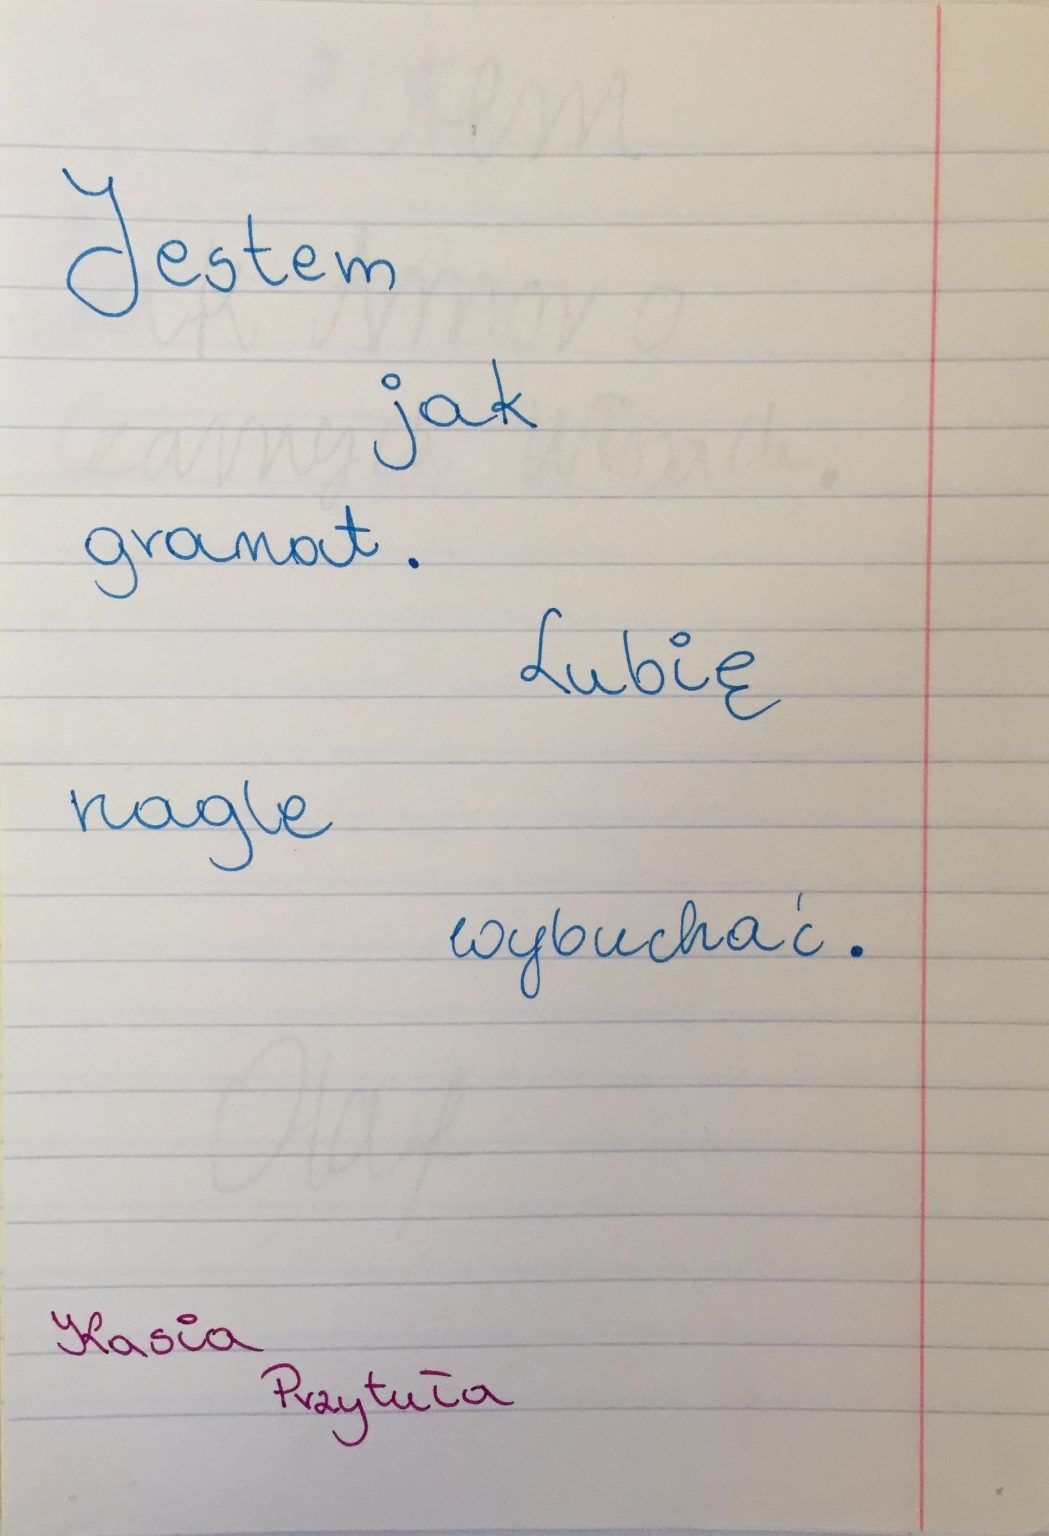 Jestem
jak
granat.
Lubię
nagle
wybuchać.
Kasia
Przytuła